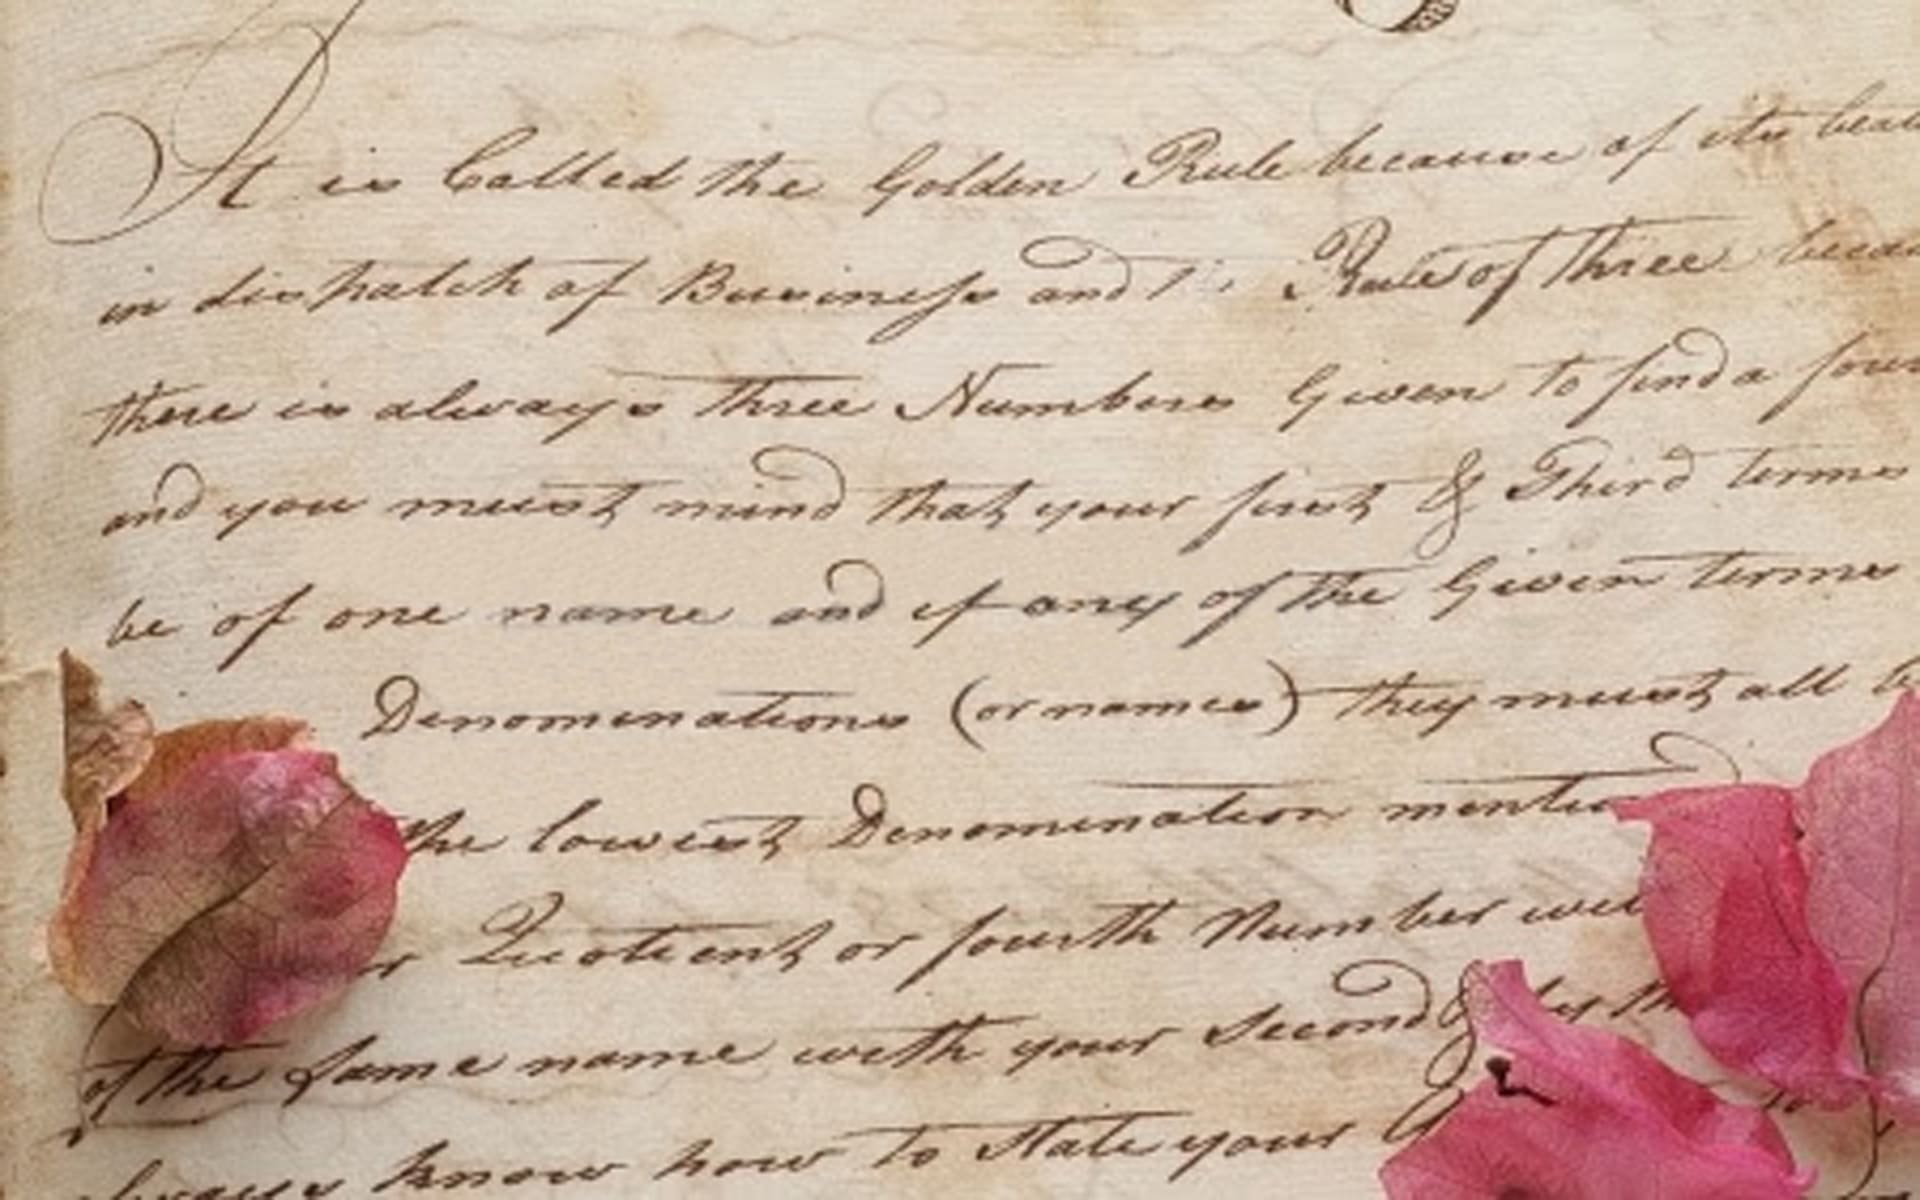 It is Called the Golden Rule because of its
in dispatch of Business and Rule of three
there is always three Numbers Given to find a
and you must mind that your first & Third terms
be of one name and if any of the Given terms
Denominations (or names) they must all
the lowest Denomination
Quotient or fourth Number
of the same name with your Second &
know how to State your